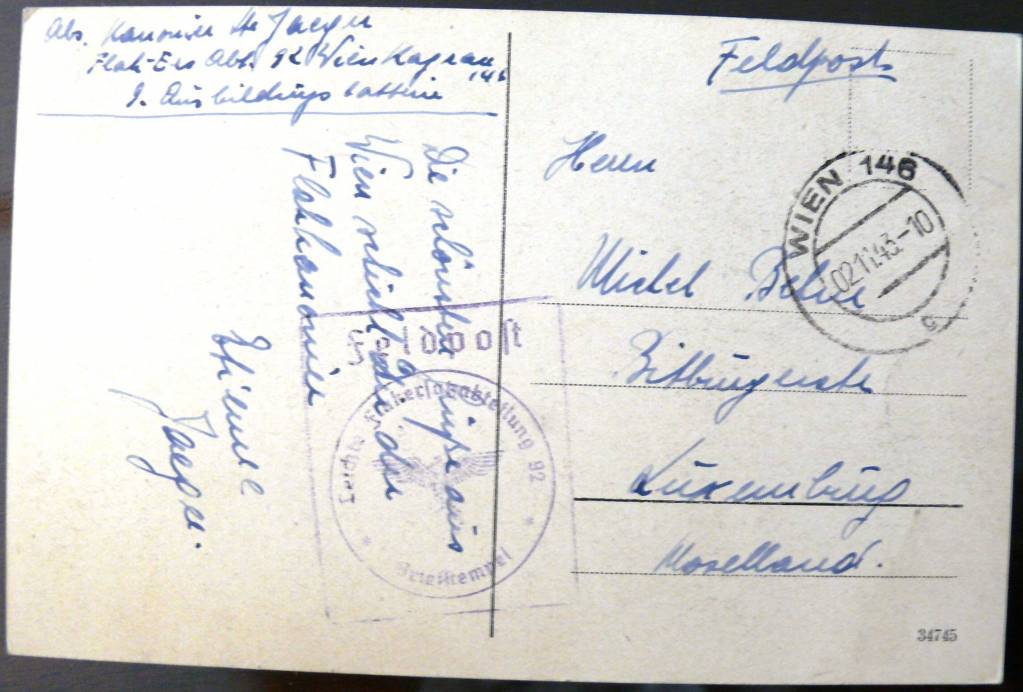 Abs. Kanonier H. Jaeger
Flak-Ers Abt. 92 Wien Kagran
146
9. Ausbildungsbatterie
Feldpost
Die schönsten Grüße aus
Wien schickt Dir der
Flakkanonier
Etienne
Jaeger.
Herrn
Michel
Bitburgerstr
Luxemburg
Moselland.
WIEN 146
02.11.43.-10
c
Feldpost
Leichte Flakersatzabteilung 92
* Briefstempel *
34745